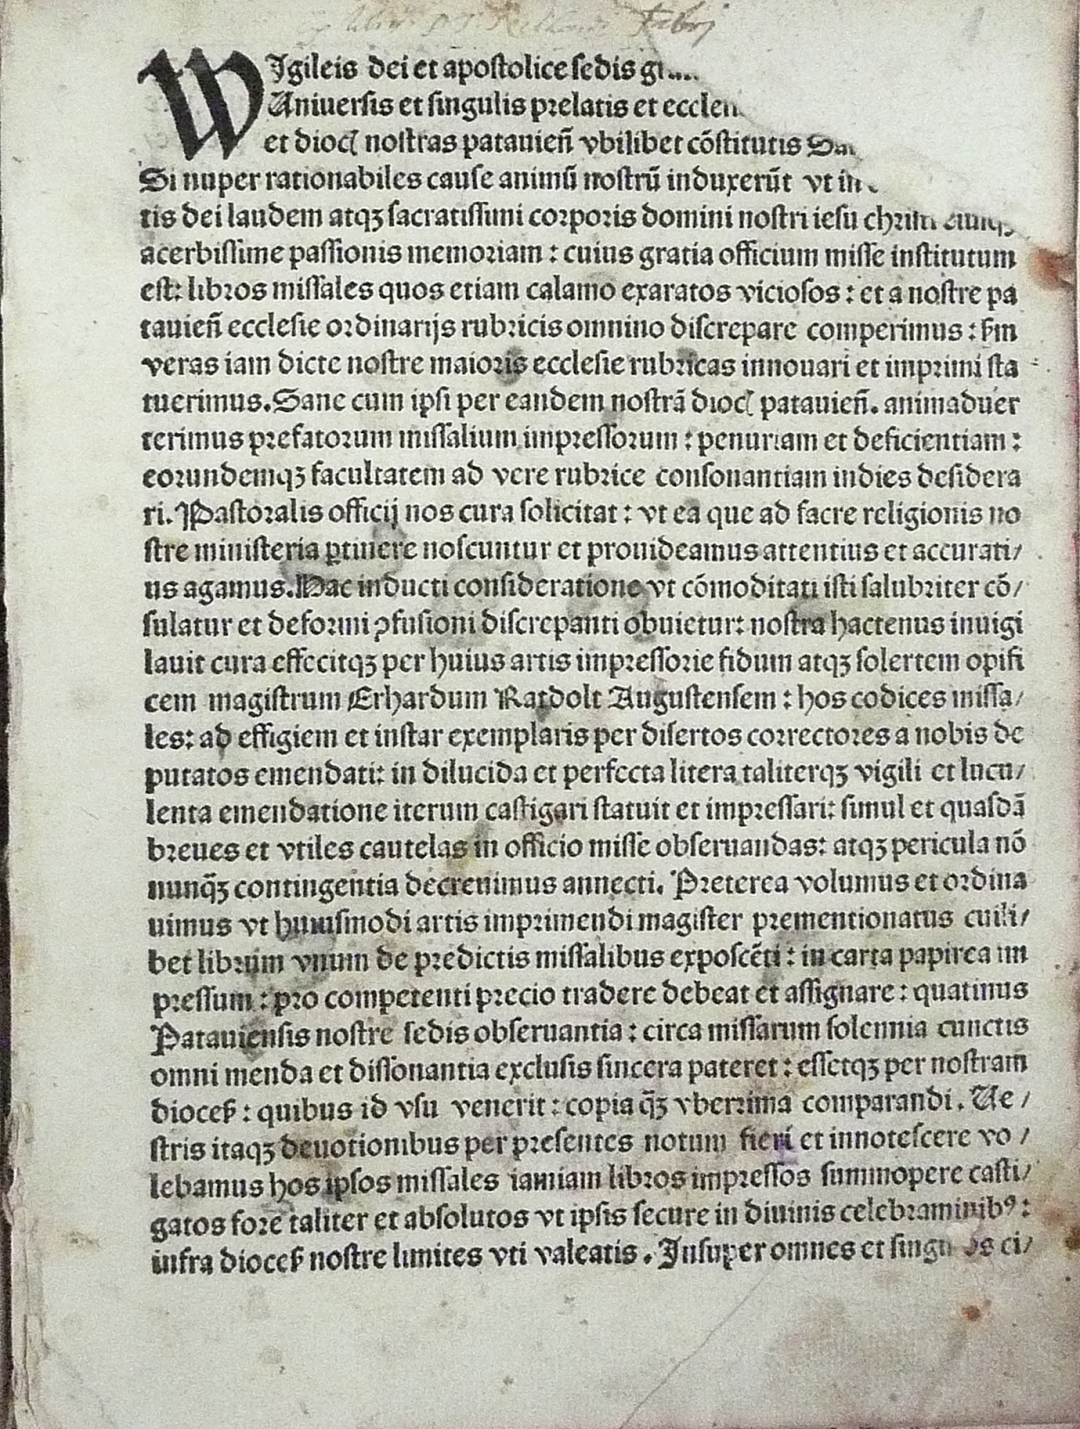 WIgileis dei et apostolice sedis
Uniuersis et singulis prelatis et
et dioc̄ nostras patauieñ vbilibet cōstitutis
Si nuper rationabiles cause animū nostrū induxerūt vt in
tis dei laudem atqꝫ sacratissimi corporis domini nostri iesu
acerbissime passionis memoriam : cuius gratia officium misse institutum
est: libros missales quos etiam calamo exaratos viciosos : et a nostre pa
tauieñ ecclesie ordinarijs rubricis omnino discrepare comperimus : ẜm
veras iam dicte nostre maioris ecclesie rubricas innouari et imprimi sta
tuerimus. Sane cum ipsi per eandem nostrā dioc̄ patauieñ. animaduer
terimus prefatorum missalium impressorum : penuriam et deficientiam :
eorundemqꝫ facultatem ad vere rubrice consonantiam indies desidera
ri. Pastoralis officij nos cura solicitat : vt ea que ad sacre religionis no
stre ministeria ꝑtinere noscuntur et prouideamus attentius et accurati/
us agamus. Hac inducti consideratione vt cōmoditati isti salubriter cō/
sulatur et deformi ꝯfusioni discrepanti obuietur: nostra hactenus inuigi
lauit cura effecitqꝫ per huius artis impressorie fidum atqꝫ solertem opifi
cem magistrum Erhardum Ratdolt Augustensem : hos codices missa/
les: ad effigiem et instar exemplaris per disertos correctores a nobis de
putatos emendati: in dilucida et perfecta litera taliterqꝫ vigili et lucu/
lenta emendatione iterum castigari statuit et impressari: simul et quasdā
breues et vtiles cautelas in officio misse obseruandas: atqꝫ pericula nō
nunqꝫ̄ contingentia decreuimus annecti. Preterea volumus et ordina
uimus vt huiusmodi artis imprimendi magister prementionatus cuili/
bet librum vnum de predictis missalibus exposcēti : in carta papirea im
pressum : pro competenti precio tradere debeat et assignare : quatinus
Patauiensis nostre sedis obseruantia : circa missarum solennia cunctis
omni menda et dissonantia exclusis sincera pateret : essetqꝫ per nostram
dioceẜ : quibus id vsu venerit : copia qꝫ̄ vberrima comparandi. Ue/
stris itaqꝫ deuotionibus per presentes notum fieri et innotescere vo/
lebamus hos ipsos missales iamiam libros impressos summopere casti/
gatos fore taliter et absolutos vt ipsis secure in diuinis celebraminibꝰ :
infra dioceẜ nostre limites vti valeatis. Insuper omnes et ci/